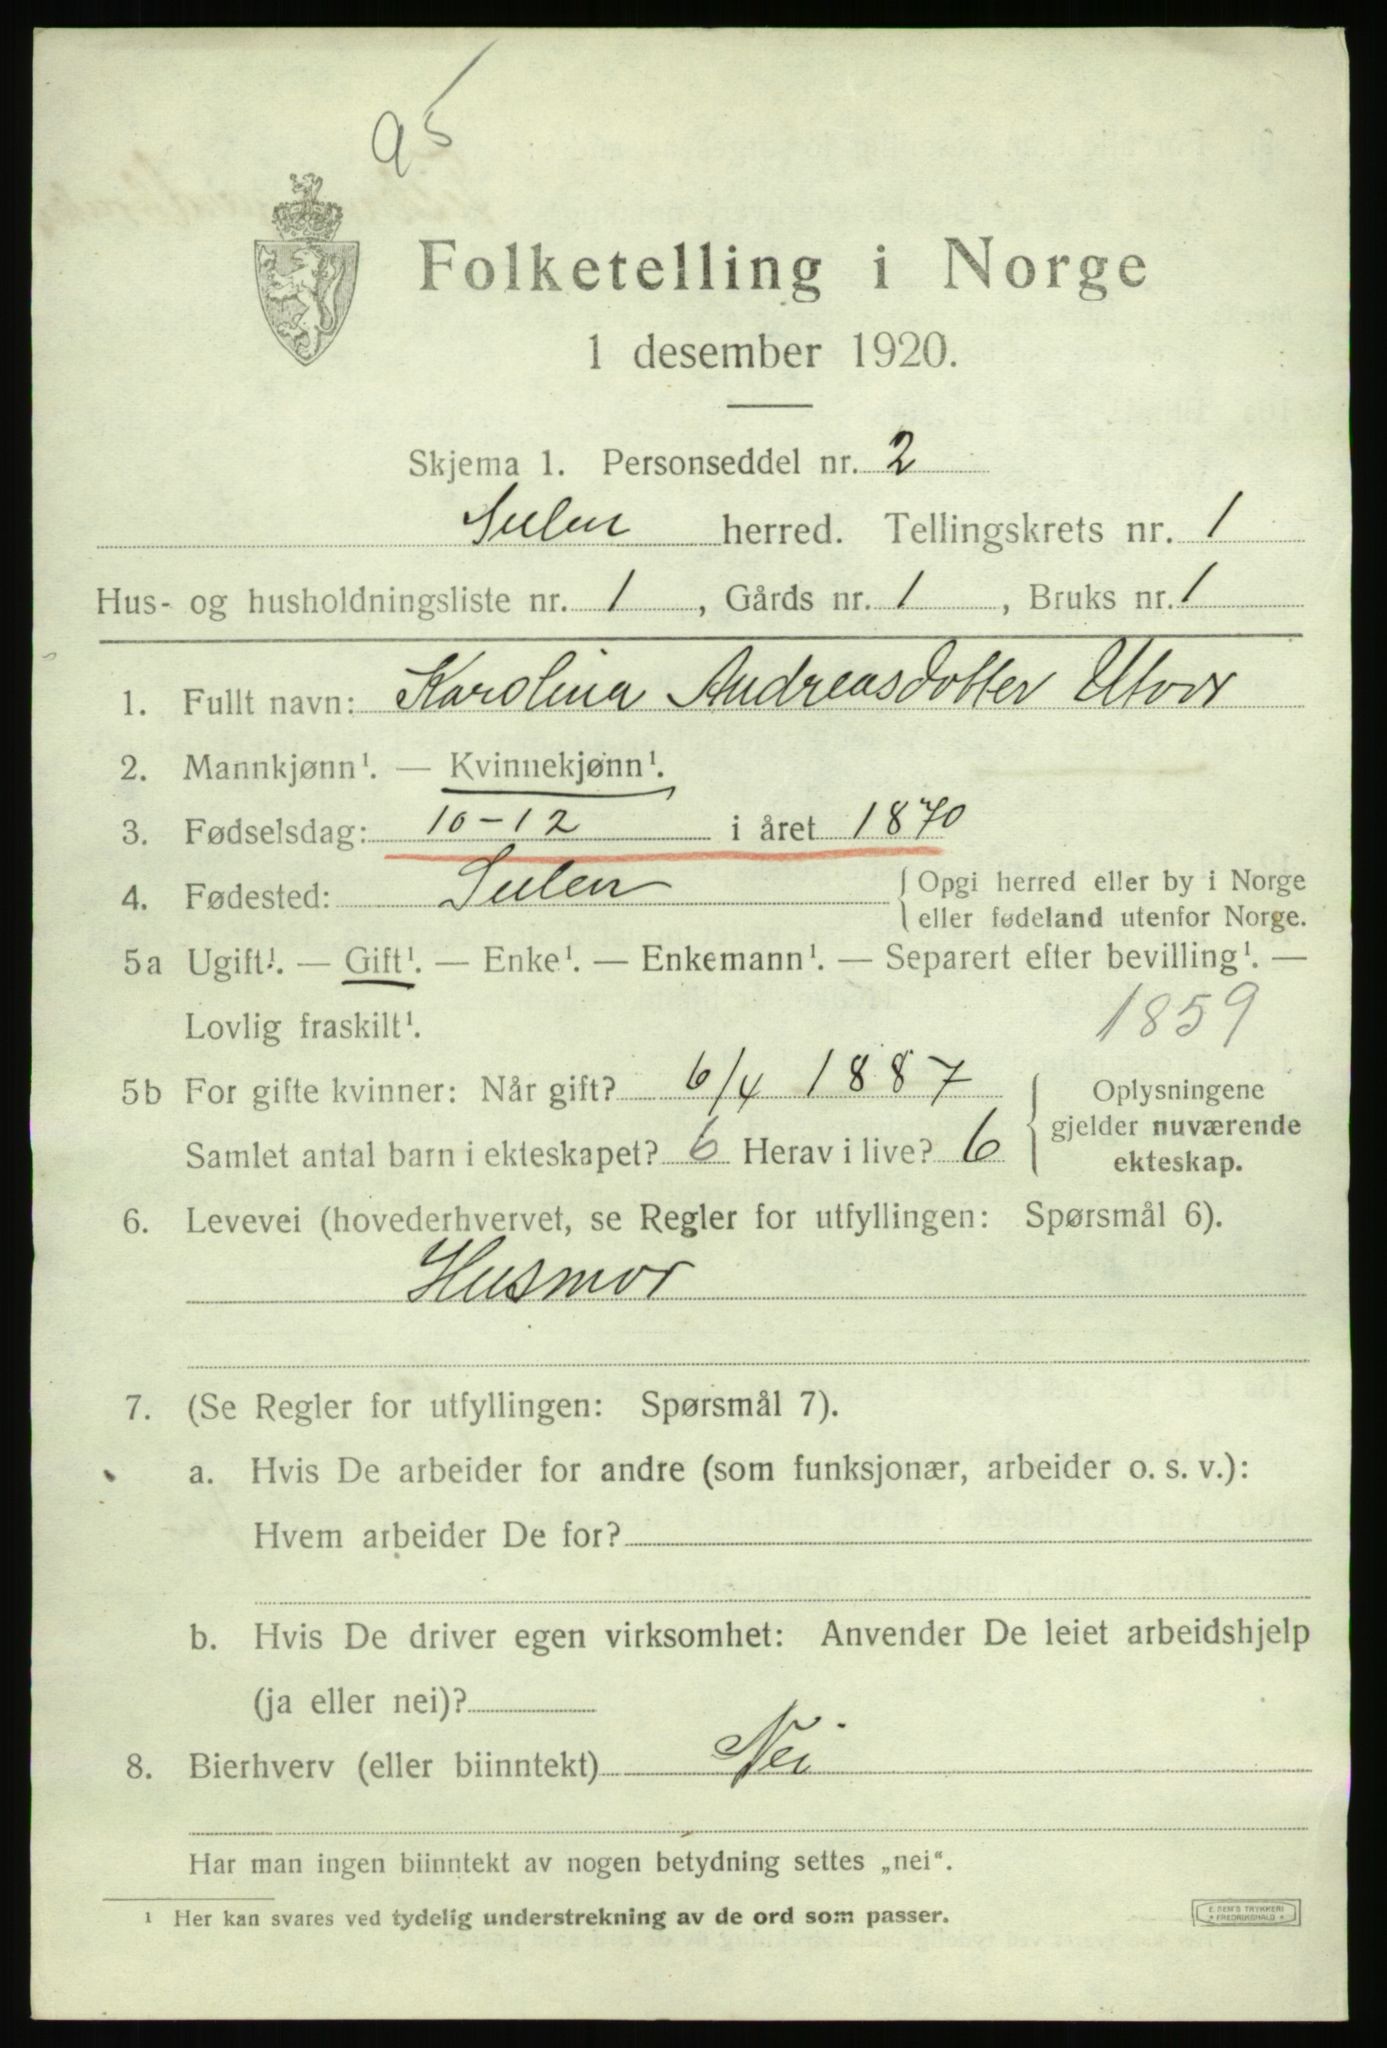 95
Folketelling i Norge
1 desember 1920.
Skjema 1. Personseddel nr. 2
Sulen herred. Tellingskrets nr. 1
Hus- og husholdningsliste nr. 1, Gårds nr. 1, Bruks nr. 1
1. Fullt navn: Karolina Andreasdotter Utvær
2. Mannkjønn¹. — Kvinnekjønn¹.
3. Fødselsdag: 10-12 i året 1870
4. Fødested: Sulen { Opgi herred eller by i Norge
eller fødeland utenfor Norge.
5a Ugift¹. — Gift¹. — Enke¹. — Enkemann¹. — Separert efter bevilling¹. —
Lovlig fraskilt¹. 1859
5b For gifte kvinner: Når gift? 6/4 1887 { Oplysningene
gjelder nuværende
Samlet antal barn i ekteskapet? 6 Herav i live? 6
ekteskap.
6. Levevei (hovederhvervet, se Regler for utfyllingen: Spørsmål 6).
Husmor
7. (Se Regler for utfyllingen: Spørsmål 7).
a. Hvis De arbeider for andre (som funksjonær, arbeider o. s. v.):
Hvem arbeider De for?
b. Hvis De driver egen virksomhet: Anvender De leiet arbeidshjelp
(ja eller nei)?
8. Bierhverv (eller biinntekt) Nei
Har man ingen biinntekt av nogen betydning settes „nei“.
¹ Her kan svares ved tydelig understrekning av de ord som passer.
E. SEM'S TRYKKERI
FREDRIKSHALD